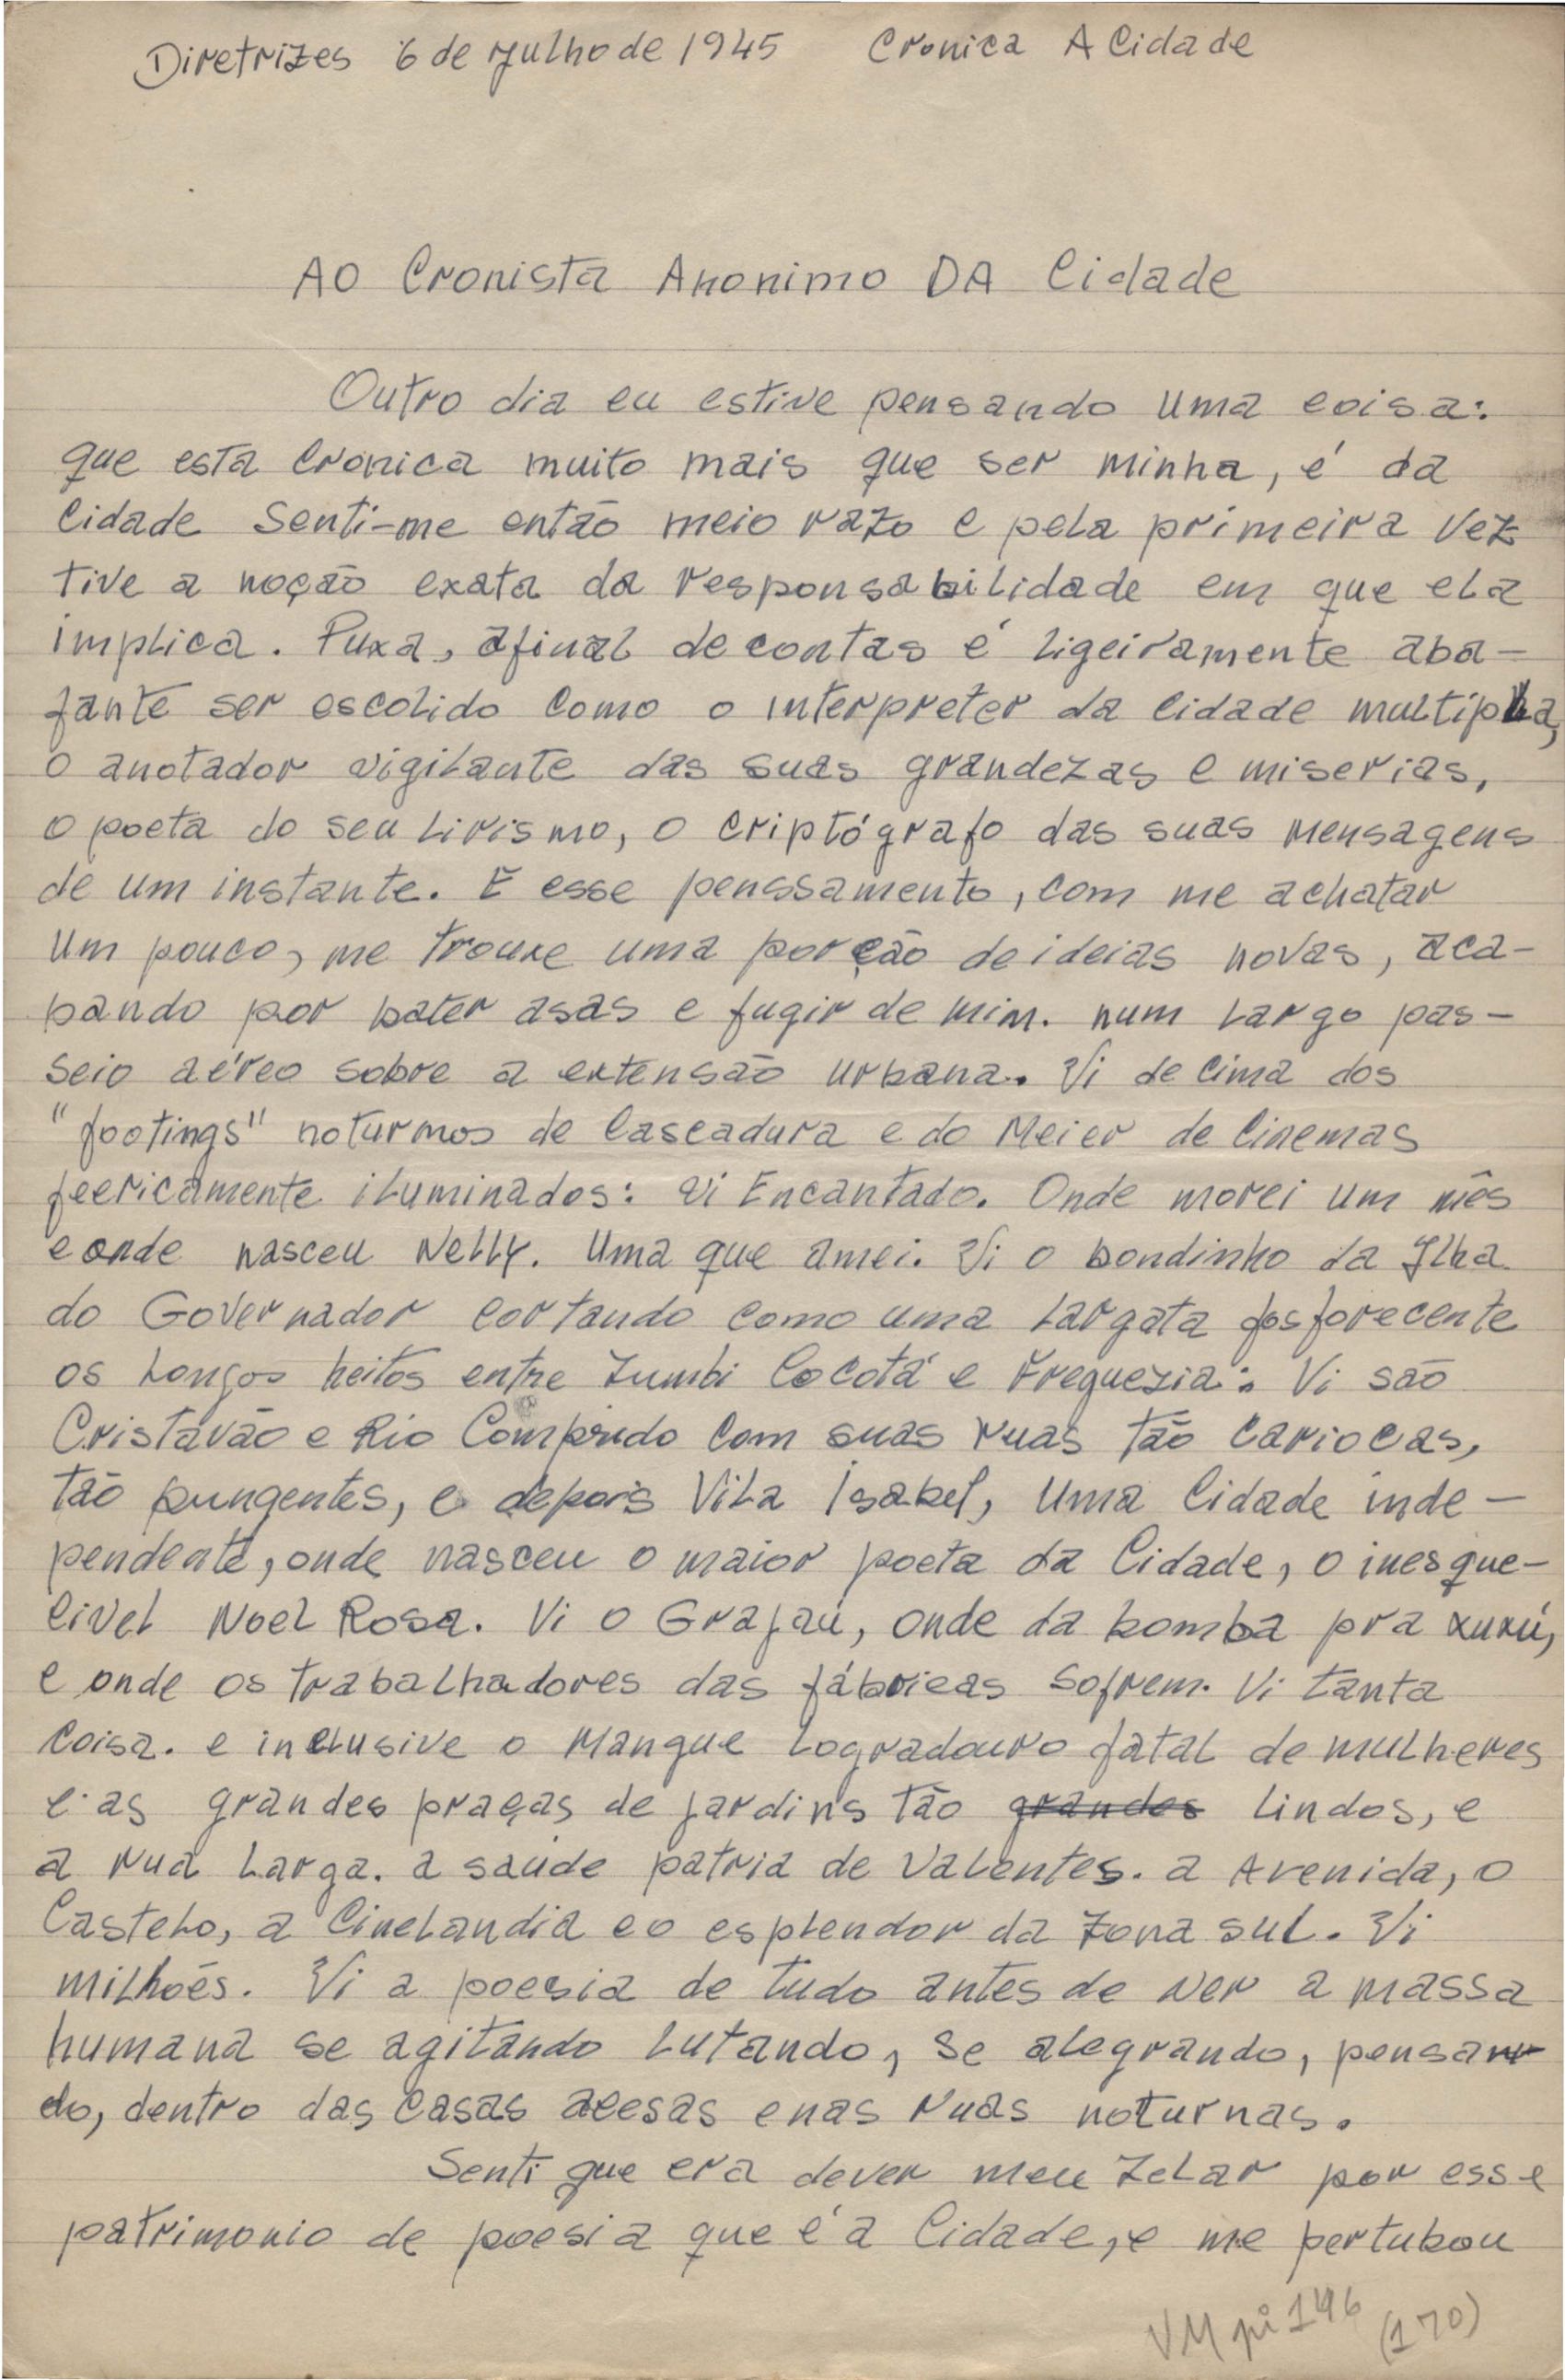 Diretrizes 6 de julho de 1945 Cronica A Cidade
AO Cronista Anonimo DA Cidade
Outro dia eu estive pensando uma coisa:
que esta Cronica muito mais que ser minha, é da
Cidade Senti-me então meio razo e pela primeira vez
tive a noção exata da responsabilidade em que ela
implica. Puxa, afinal de contas é ligeiramente aba-
fante ser escolido como o interpreter da cidade multipla,
o anotador vigilante das suas grandezas e miserias,
o poeta do seu lirismo, o criptógrafo das suas mensagens
de um instante. E esse penssamento, com me achatar
um pouco, me trouxe uma porção de ideias novas, aca-
bando por bater asas e fugir de mim. num largo pas-
seio aéreo sobre a extensão urbana. Vi de cima dos
"footings" noturmos de Cascadura e do Meier de Cinemas
feericamente iluminados: vi Encantado. Onde morei um mês
e onde nasceu Nelly. Uma que amei. Vi o bondinho da Ilha
do Governador cortando como uma largata fosforecente
os longos heitos entre Zumbi Cocotá e Freguezia: Vi são
Cristavão e Rio Comprido com suas ruas tão cariocas,
tão pungentes, e depois Vila Isabel, uma Cidade inde-
pendente, onde nasceu o maior poeta da Cidade, o inesque-
civel Noel Rosa. Vi o Grajaú, onde da bomba pra xuxú,
e onde os trabalhadores das fábricas sofrem. Vi tanta
coisa. e inclusive o Mangue logradouro fatal de mulheres
e as grandes praças de jardins tão grandes lindos, e
a rua Larga. a saúde patria de valentes. a Avenida, o
Castelo, a Cinelandia e o esplendor da zona sul. Vi
milhões. Vi a poesia de tudo antes de ver a massa
humana se agitando lutando, se alegrando, pensan
do, dentro das casas acesas e nas ruas noturnas.
Senti que era dever meu zelar por esse
patrimonio de poesia que é a Cidade, e me pertubou
VM pi 146 (170)